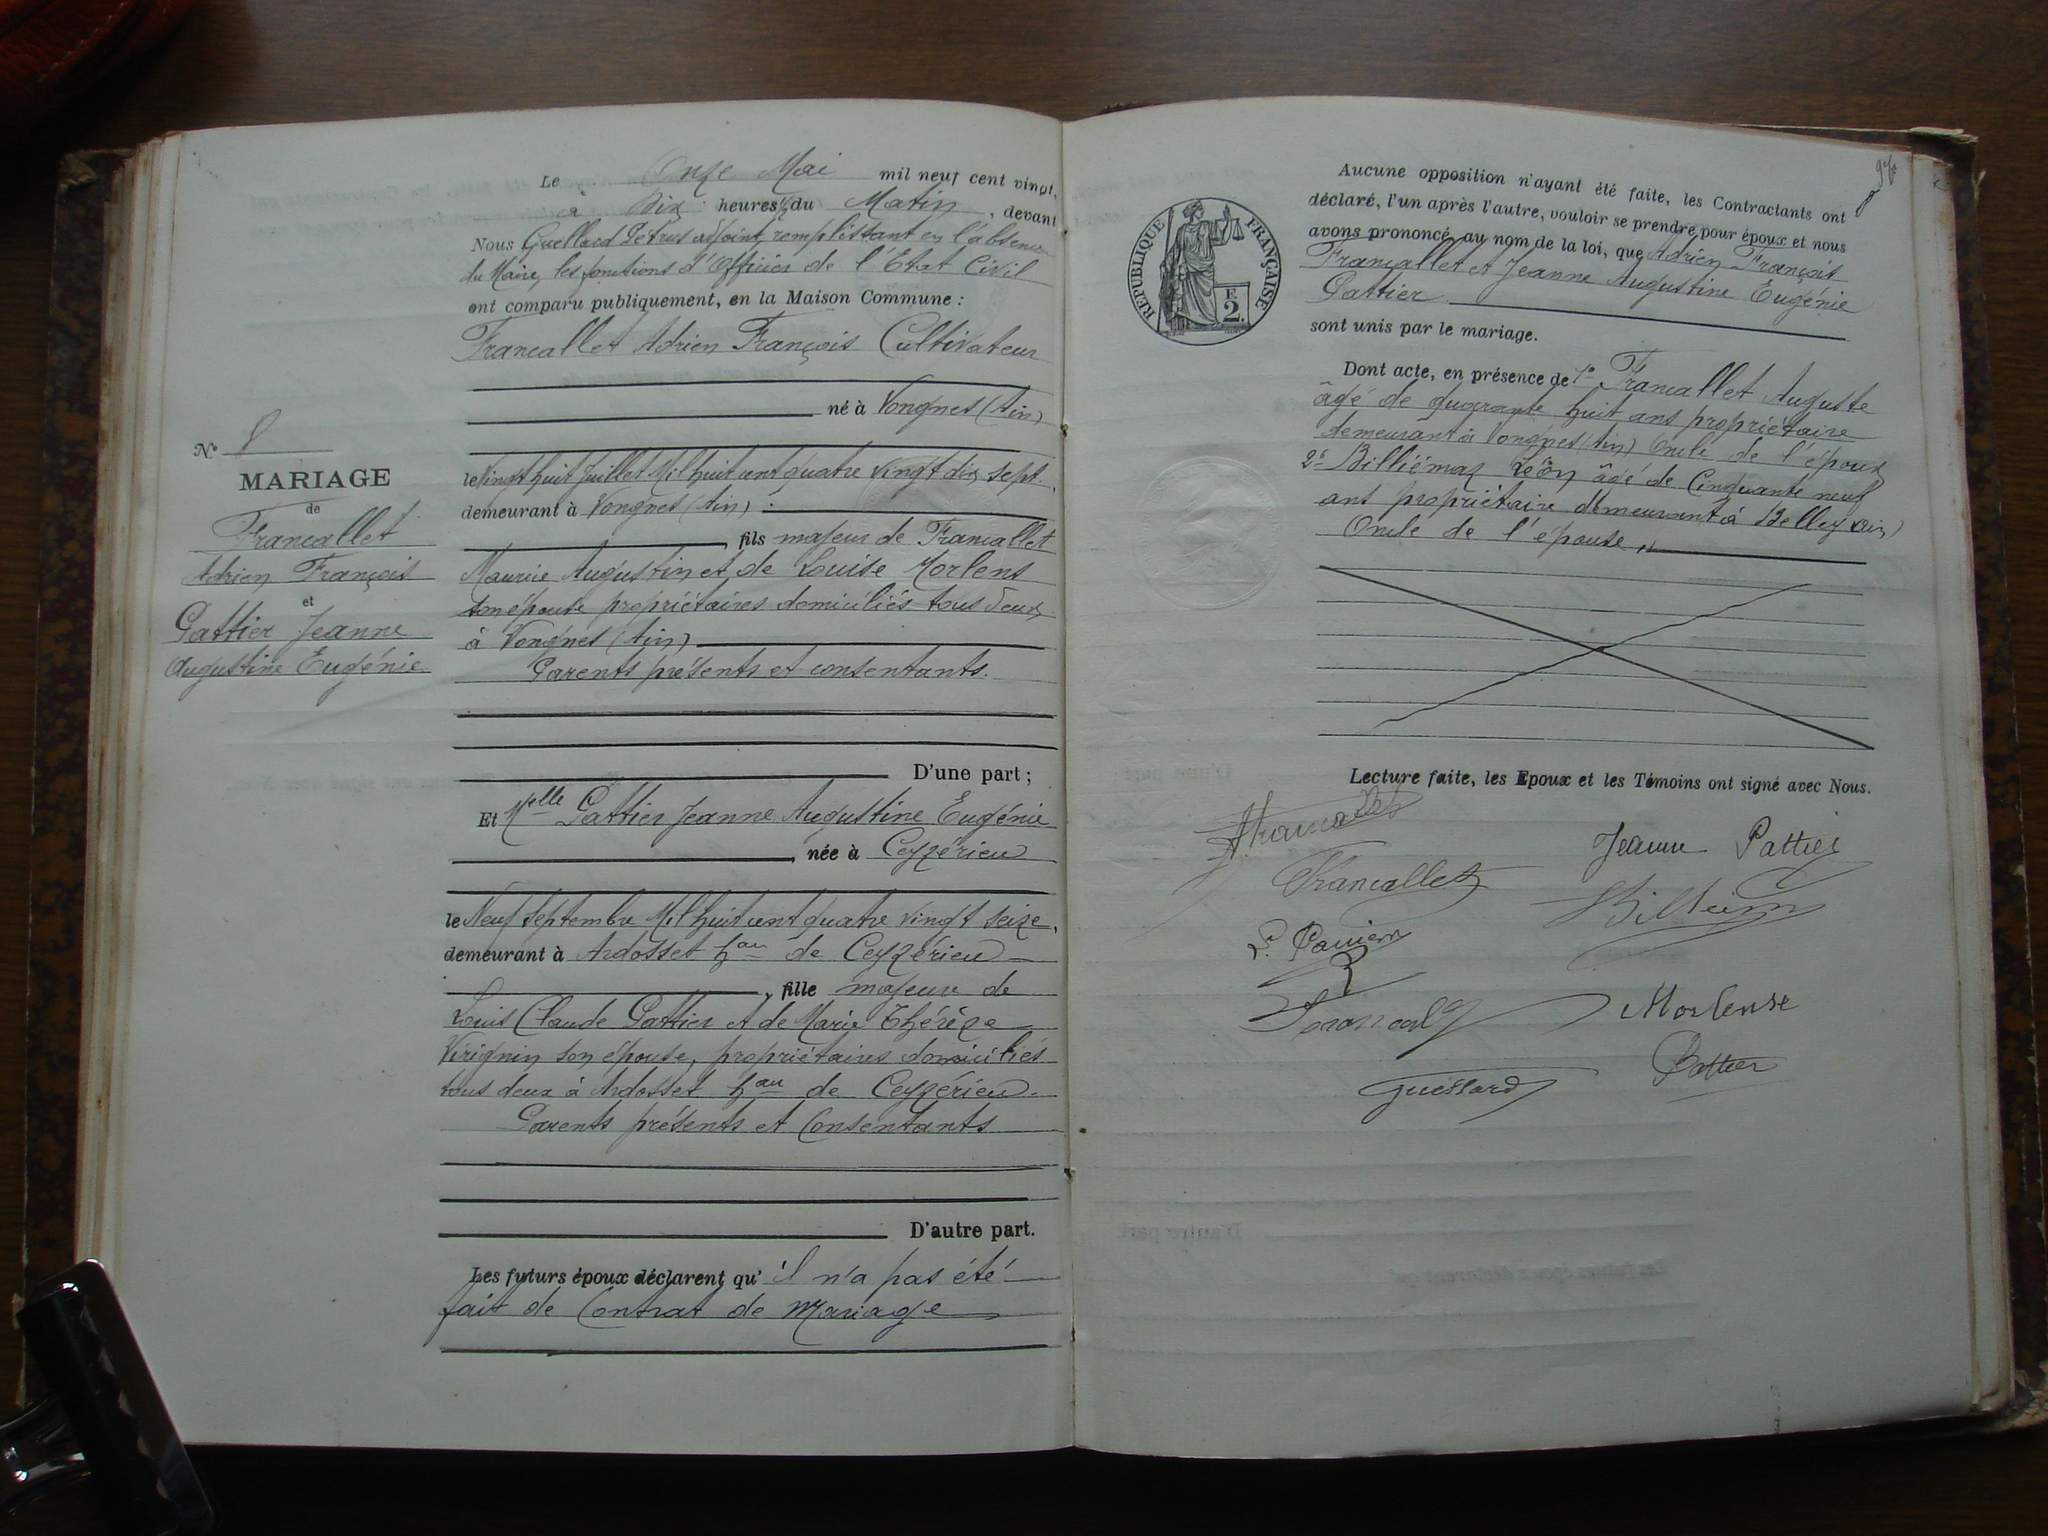 Le Onze Mai mil neuf cent vingt,
à Dix heures ½ du Matin, devant
Nous Guellard Pétrus adjoint, remplissant en l'absence
du Maire, les fonctions d'Officier de l'Etat Civil
ont comparu publiquement, en la Maison Commune :
Francallet Adrien François Cultivateur
né à Vongnes (Ain)
le Vingt huit Juillet Mil huit cent quatre vingt dix sept.,
demeurant à Vongnes (Ain) :
, fils majeur de Francallet
Maurice Augustin et de Louise Morlens
son épouse propriétaires domiciliés tous deux
à Vongnes (Ain)
Parents présents et consentants.
D'une part ;
Et Melle Pattier Jeanne Augustine Eugénie
, née à Ceyzérieu
le Neuf Septembre Mil huit cent quatre vingt seize,
demeurant à Ardosset hau de Ceyzérieu
, fille majeure de
Louis Claude Pattier et de Marie Thérèze
Virignin son épouse, propriétaires domiciliés
tous deux à Ardosset hau de Ceyzérieu.
Parents présents et Consentants
D'autre part.
Les futurs époux déclarent qu'il n'a pas été
fait de Contrat de Mariage
No 8
MARIAGE
de
Francallet
Adrien François
et
Pattier Jeanne
Augustine Eugénie
REPUBLIQUE FRANÇAISE
F.
2.
Aucune opposition n'ayant été faite, les Contractants ont
déclaré, l'un après l'autre, vouloir se prendre pour époux et nous
avons prononcé, au nom de la loi, que Adrien François
Francallet et Jeanne Augustine Eugénie
Pattier
sont unis par le mariage.
Dont acte, en présence de 1o Francallet Auguste
âgé de quarante huit ans propriétaire
demeurant à Vongnes (Ain) Oncle de l'époux
2o Billiémaz Léon âgé de Cinquante neuf
ans propriétaire demeurant à Belley (Ain)
Oncle de l'épouse
Lecture faite, les Epoux et les Témoins ont signé avec Nous.
Francallet
Jeanne Pattier
Morlense
Guellard
Pattier